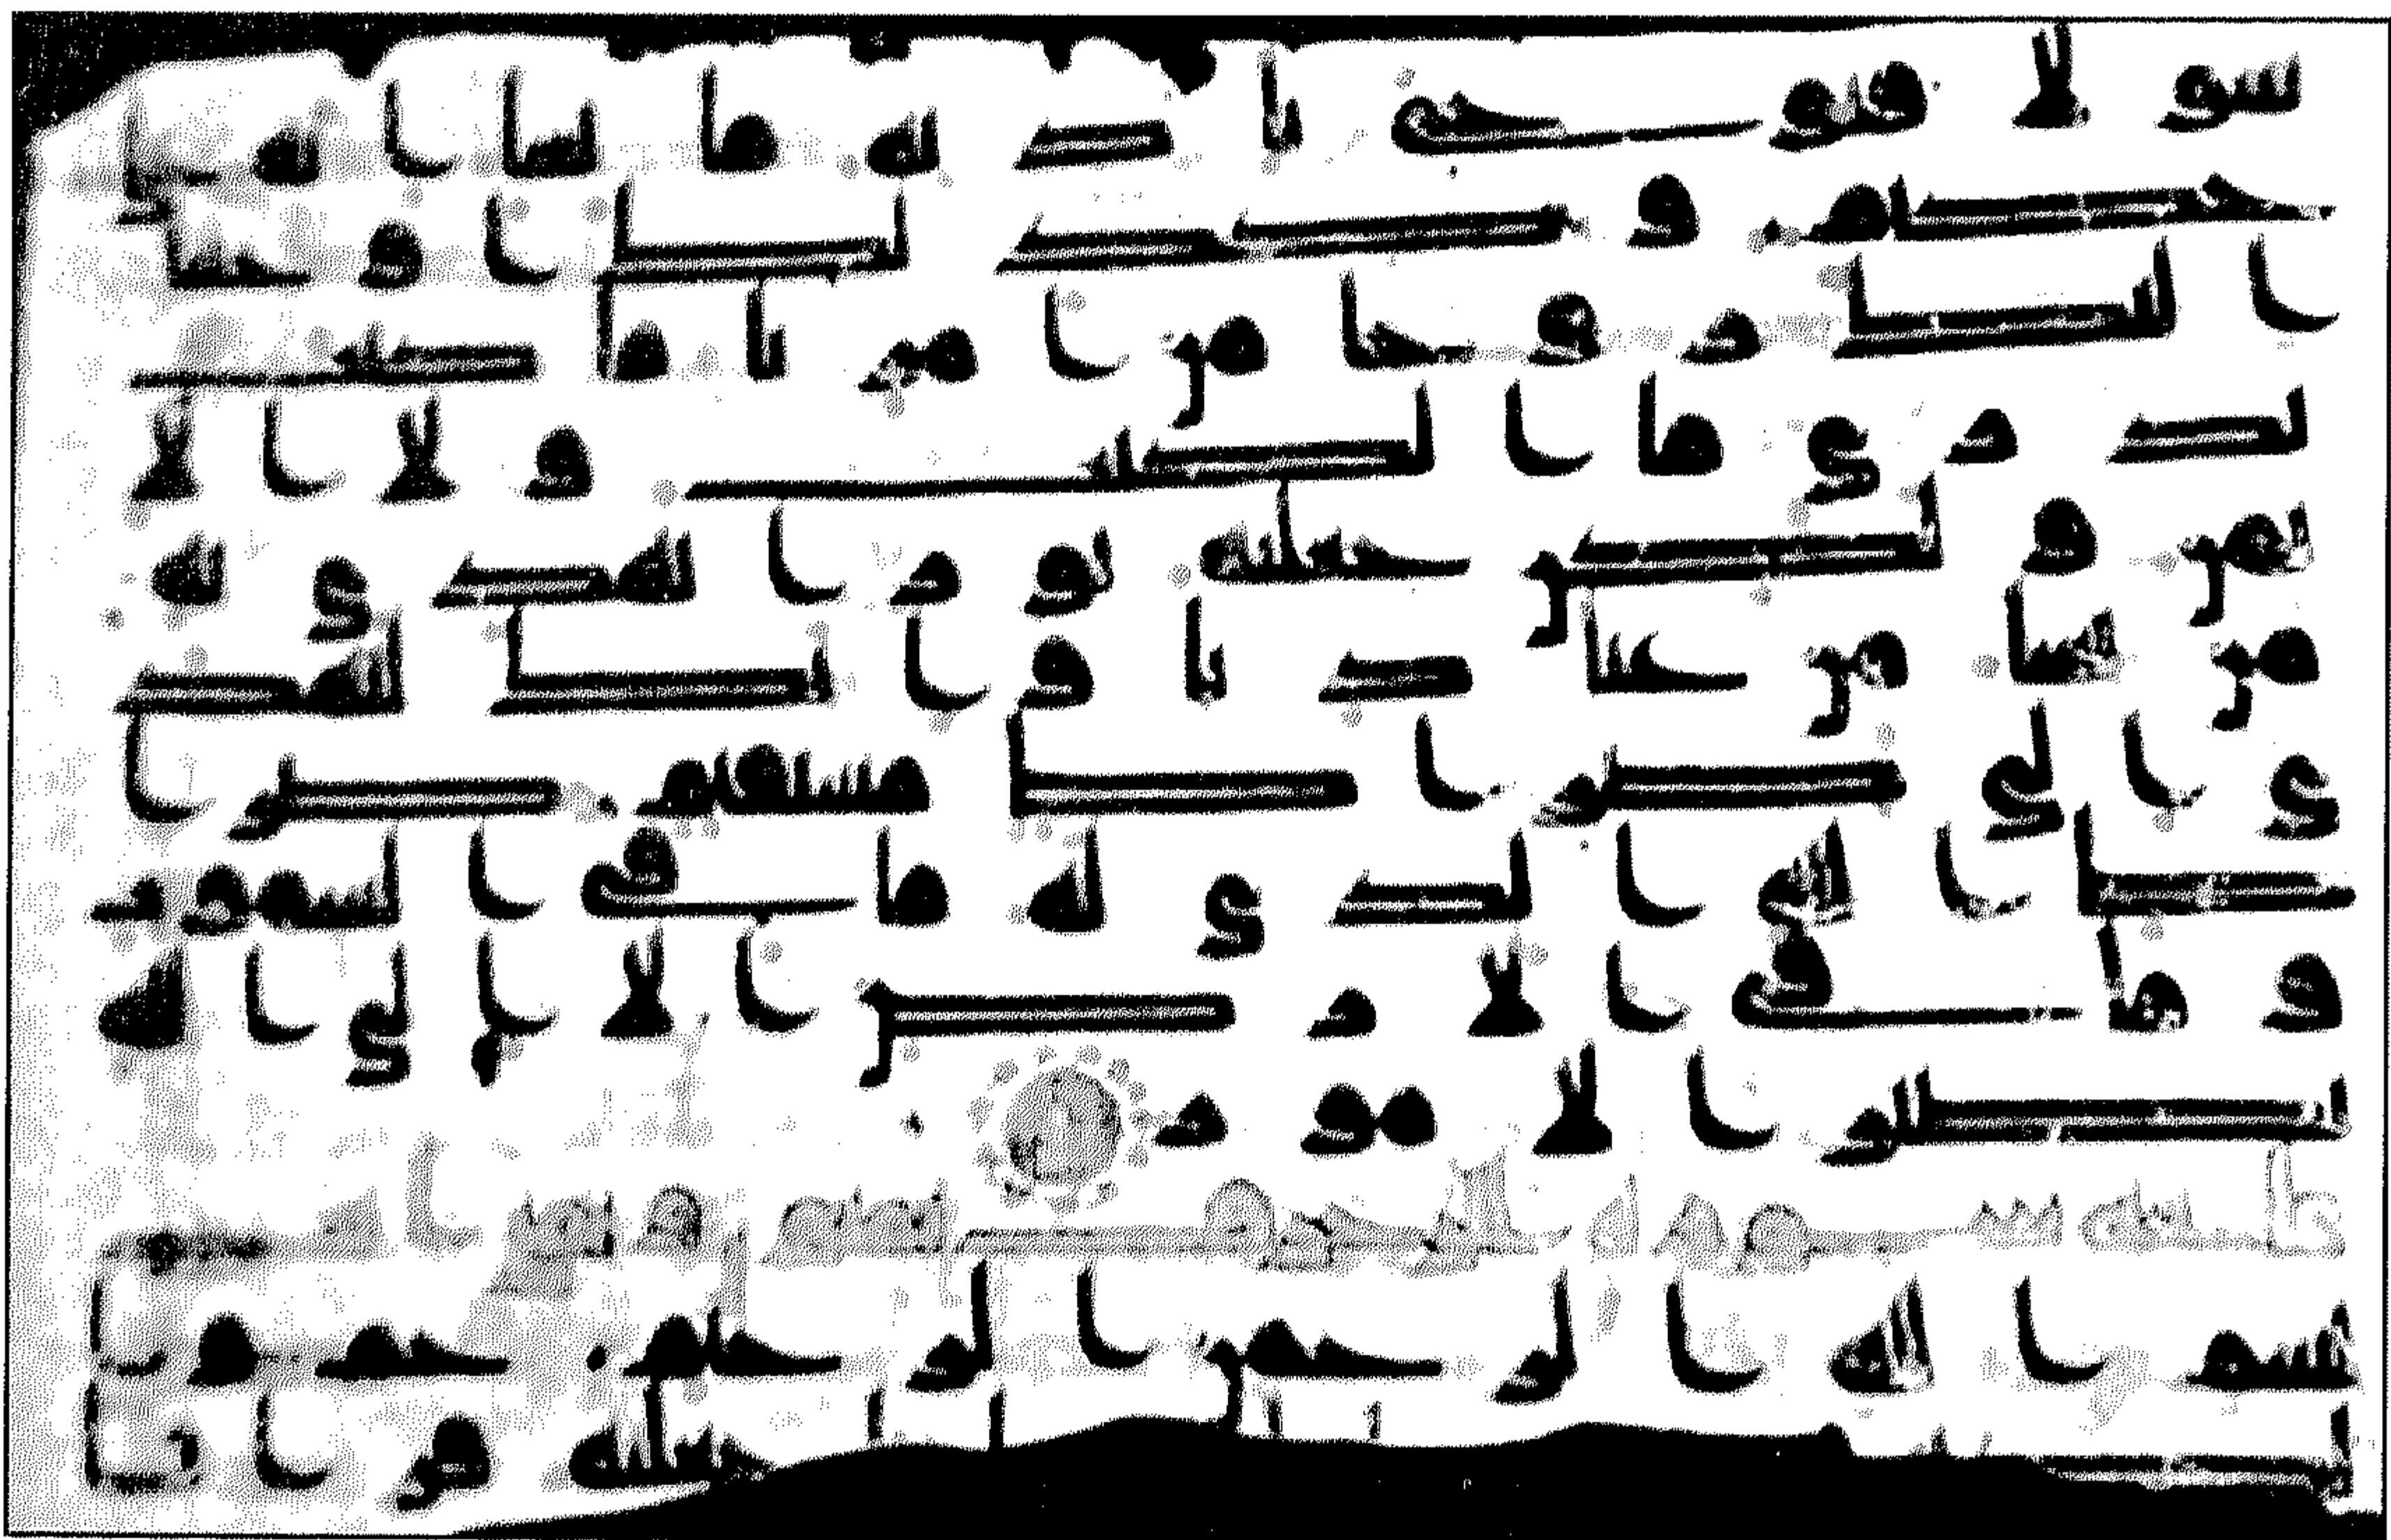 سولا فيوحي باذنه ما يشا انه علي
حكيم وكذلك اوحينا
اليك روحا من امرنا ما كنت
تدري ما الكتب ولا الا
يمن ولكن جعلنه نورا نهدي به
من نشا من عبادنا وانك لتهد
ي الى صراط مستقيم صرا
ط الله الذي له ما في السموت
وما في الارض الا الى الله
تصير الامور
بسم الله الرحمن الرحيم حم وا
جعلنه قرانا